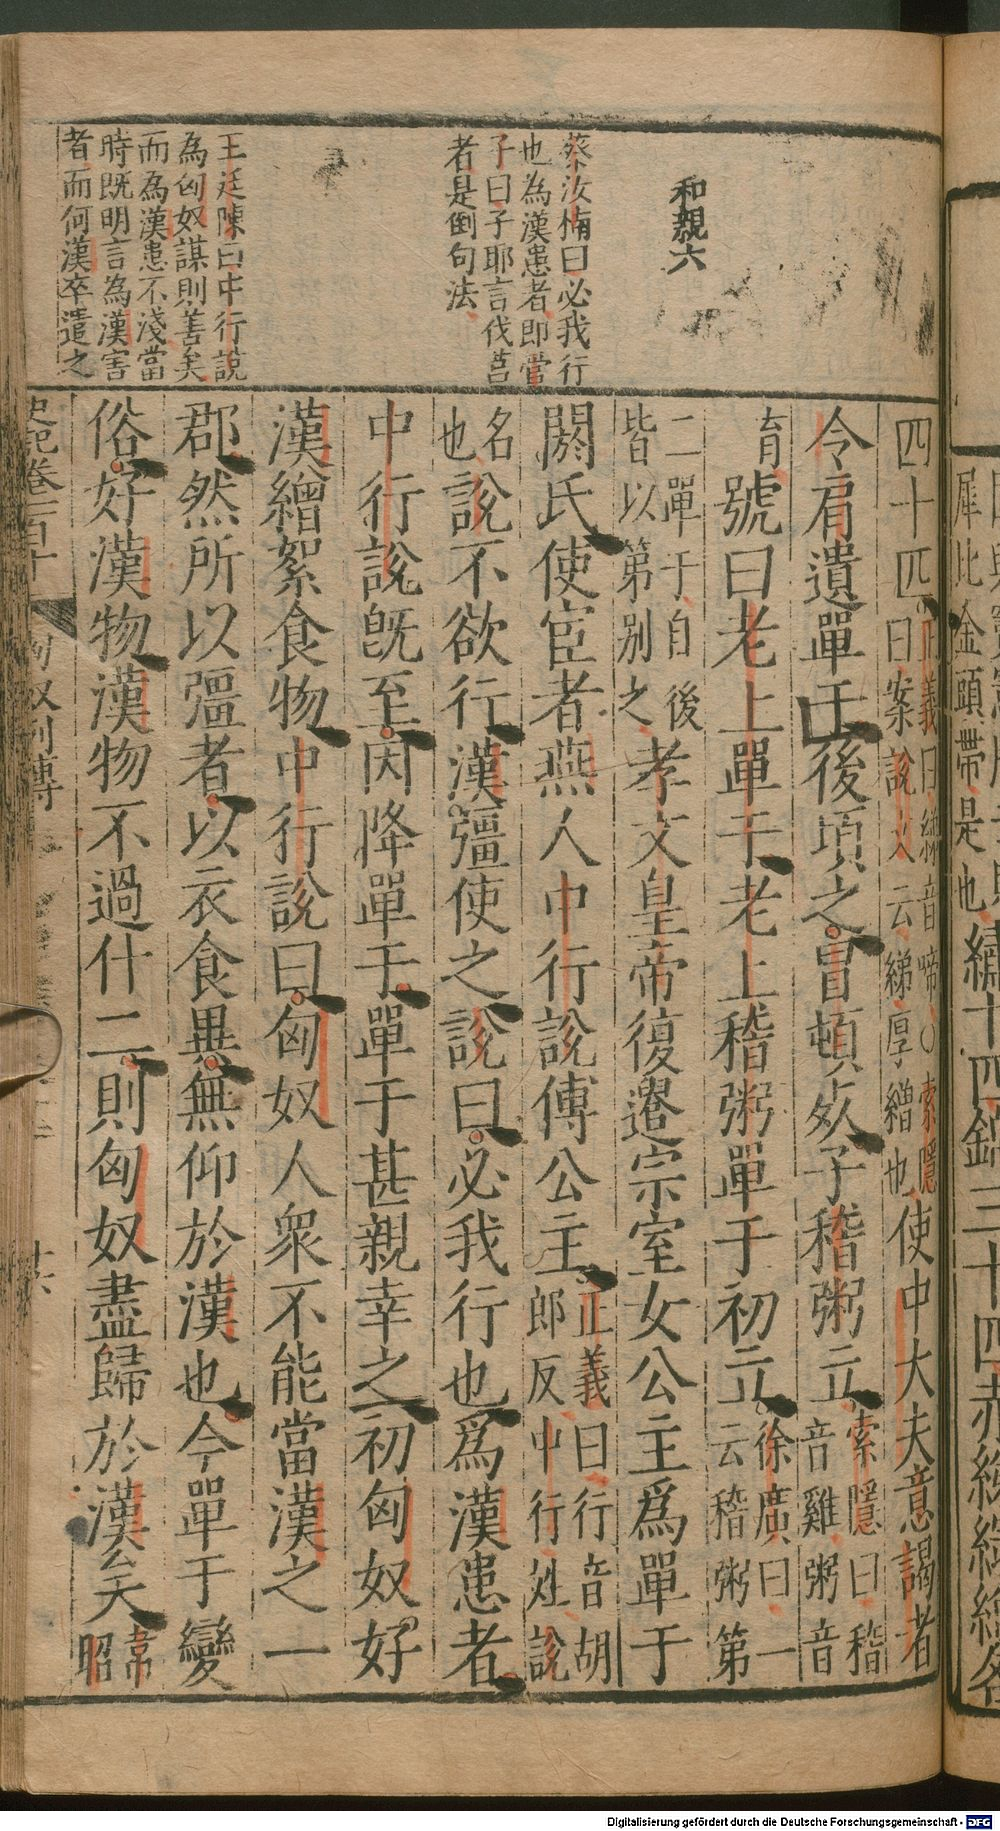 和親六
蔡汝楠曰必我行
也為漢患者即當
子曰子耶言伐莒
者是倒句法
王廷陳曰中行說
為匈奴謀則善矣
而為漢患不淺當
時既明言為漢害
者而何漢卒遣之
四十匹正義曰綈音啼○索隱曰案說文云綈厚繒也使中大夫意謁者
令肩遺單于後頃之冒頓死子稽粥立索隱曰稽音雞粥音
育號曰老上單于老上稽粥單于初立徐廣曰一云稽粥第
二單于自後皆以第別之孝文皇帝復遣宗室女公主爲單于
閼氏使宦者燕人中行說傅公主正義曰行音胡郎反中行姓說
名也說不欲行漢彊使之說曰必我行也爲漢患者
中行說旣至因降單于單于甚親幸之初匈奴好
漢繒絮食物中行說曰匈奴人衆不能當漢之一
郡然所以彊者以衣食異無仰於漢也今單于變
俗好漢物漢物不過什二則匈奴盡歸於漢矣韋昭
史記卷一百十
匈奴列傳
十六
犀比金頭帶是也繡十四錦三十四赤綈
Digitalisierung gefördert durch die Deutsche Forschungsgemeinschaft - DFG